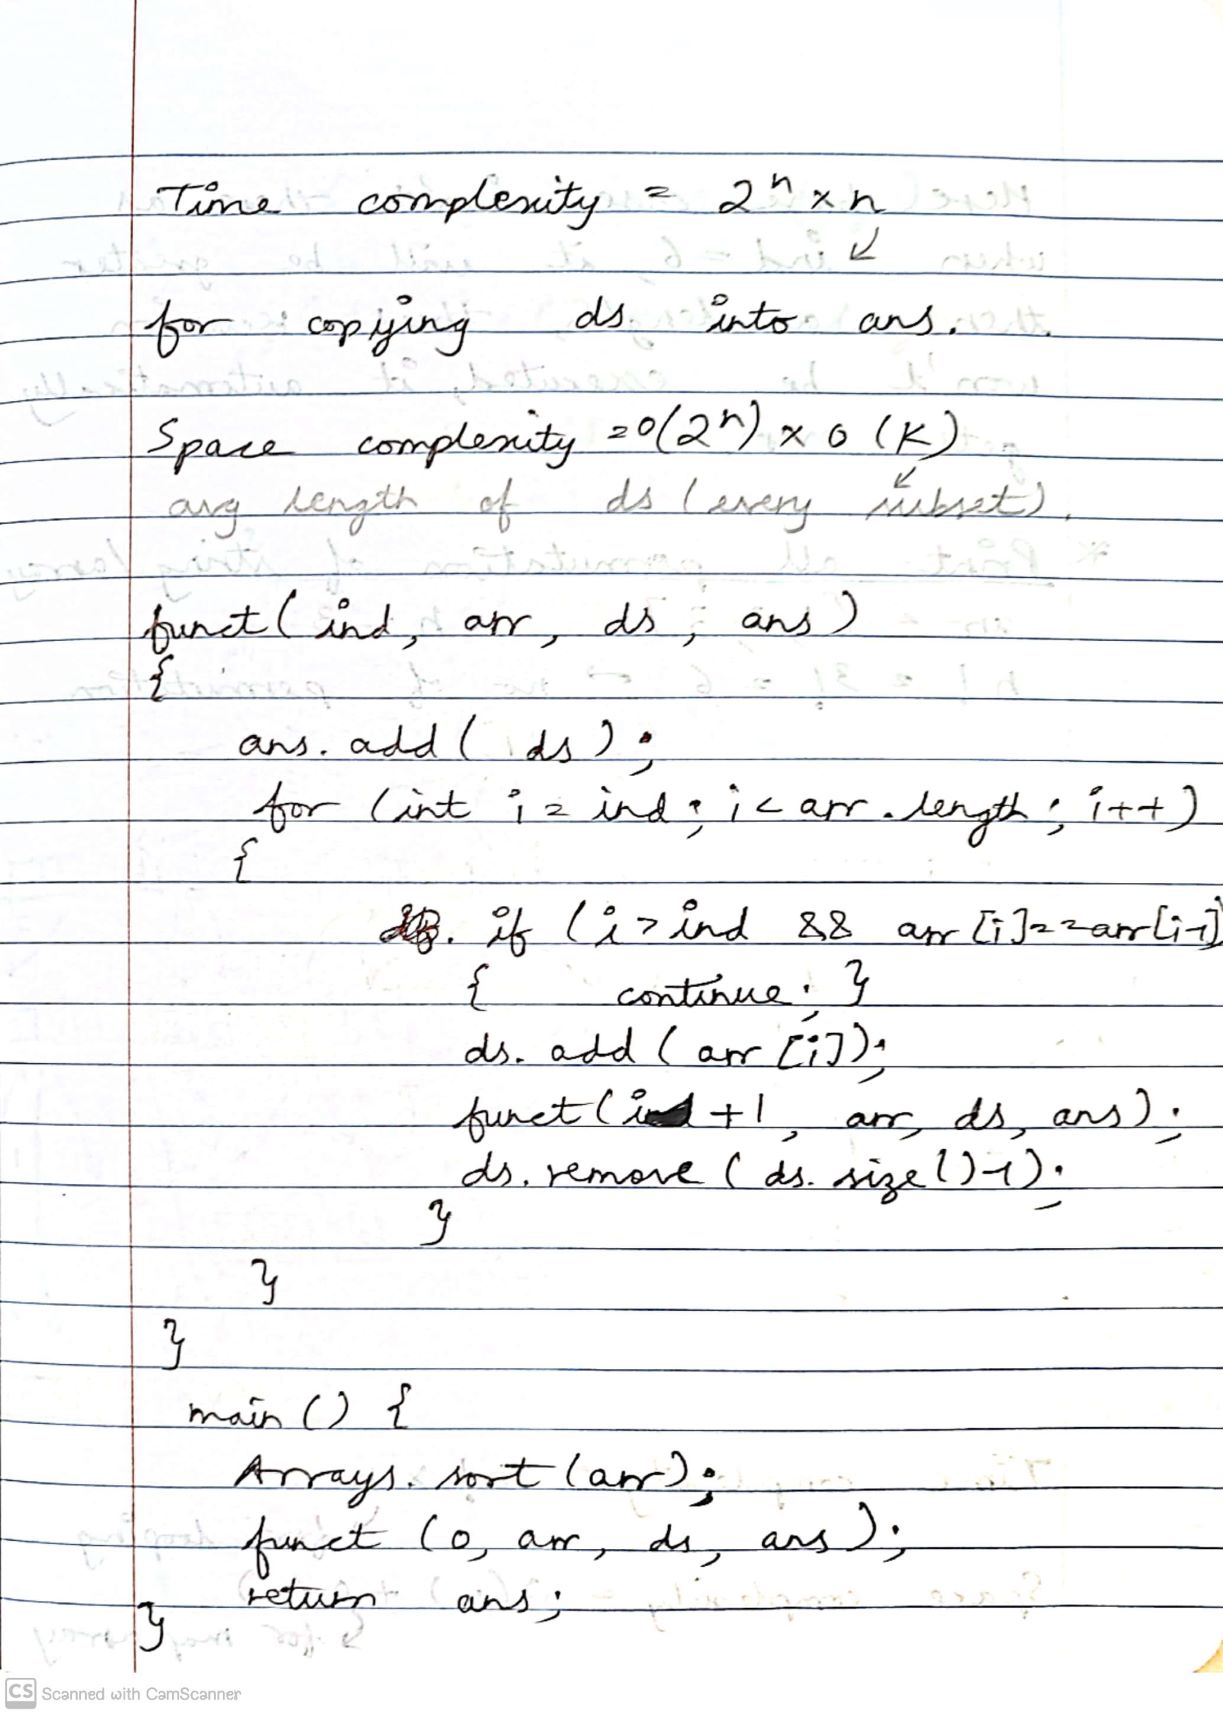 Time complexity = 2^n x n
for copying ds into ans.
Space complexity = O(2^n) x O(K)
avg length of ds (every subset).
funct(ind, arr, ds, ans)
{
ans.add(ds);
for (int i = ind; i < arr.length; i++)
{
if (i > ind && arr[i]==arr[i-1]
{ continue; }
ds.add(arr[i]);
funct( +1, arr, ds, ans);
ds.remove(ds.size()-1);
}
}
}
main() {
Arrays.sort(arr);
funct(0, arr, ds, ans);
return ans;
}
CS Scanned with CamScanner